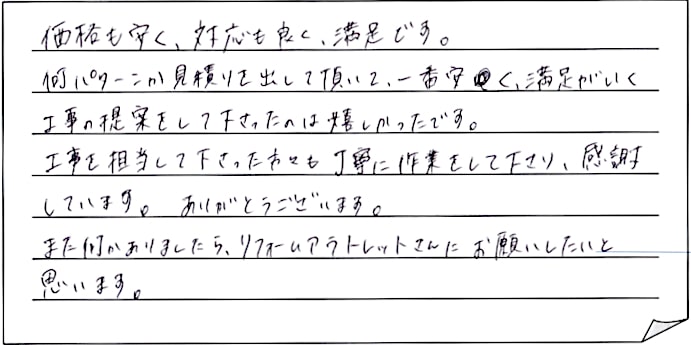 価格も安く、対応も良く、満足です。
何パターンか見積りを出して頂いて、一番安く、満足がいく
工事の提案をして下さったのは嬉しかったです。
工事を担当して下さった方々も丁寧に作業をして下さり、感謝
しています。 ありがとうございます。
また何かありましたら、リフォームアウトレットさんにお願いしたいと
思います。